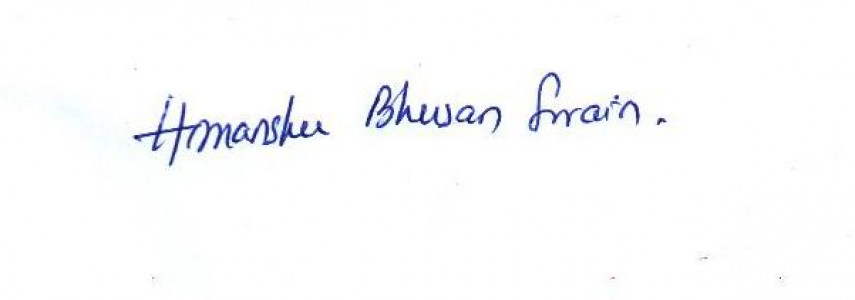 Himanshu Bhusan Swain.